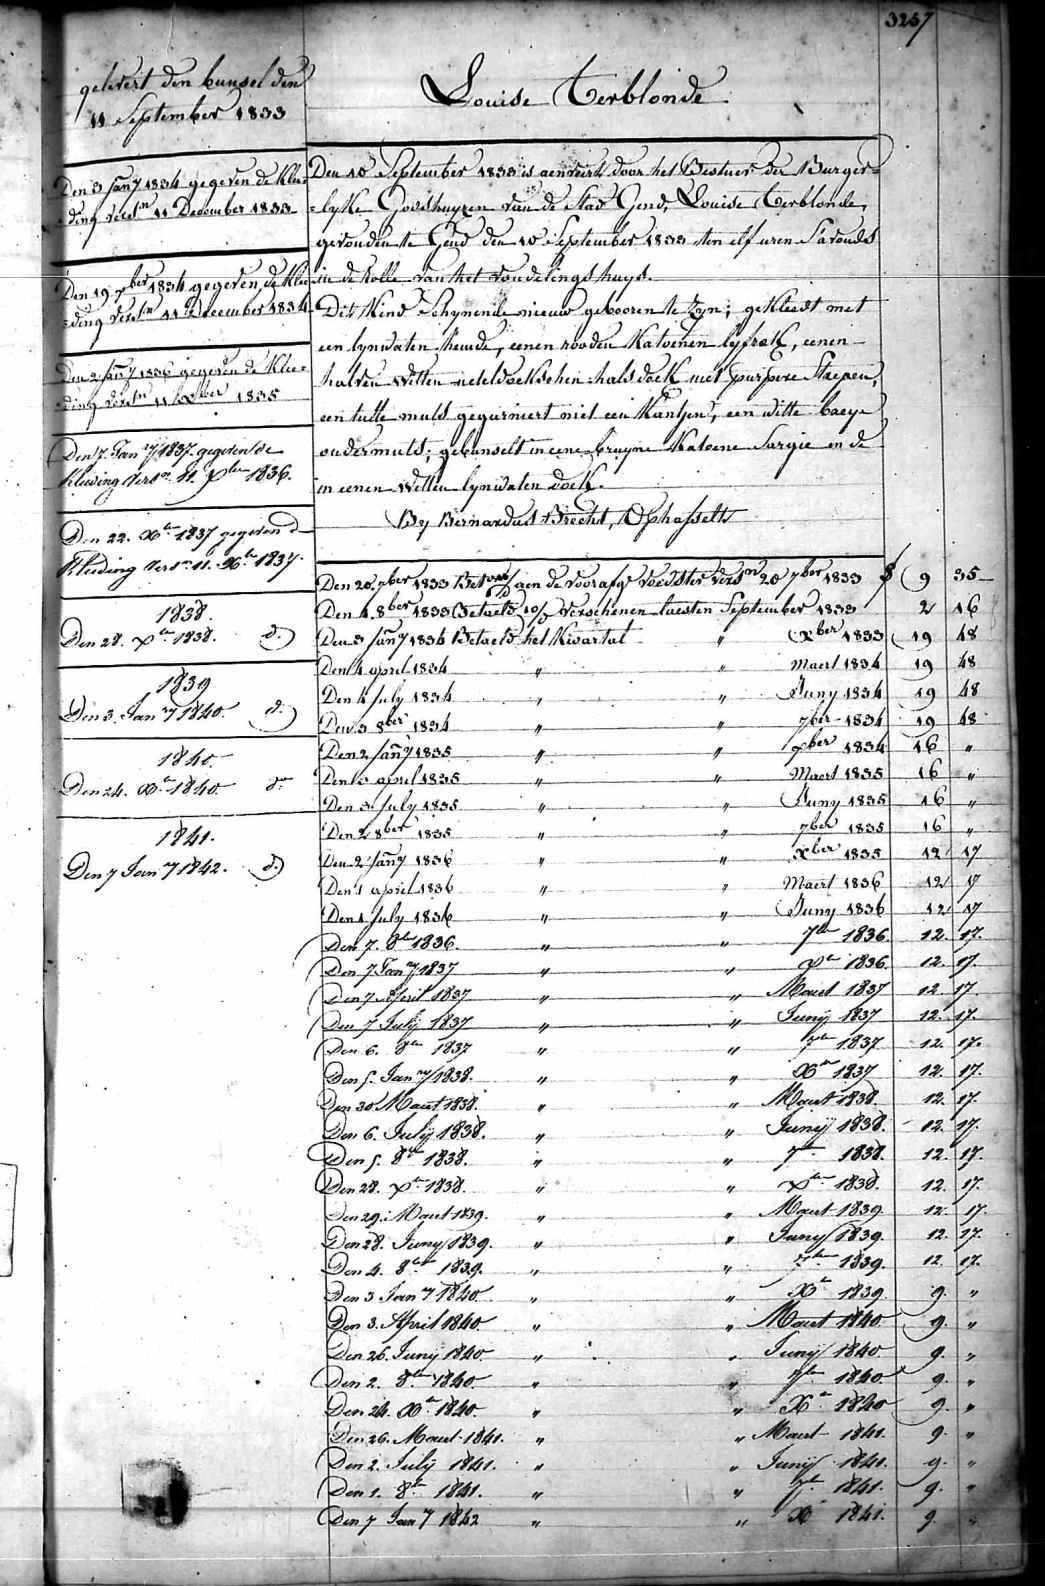 3257
gelevert den bunsel den
11 September 1833
Louise Terblonde
Den 3 Jany 1834 gegeven de Klee=
=ding verstn 11 December 1833
Den 19 7ber 1834 gegeven de Klee=
=ding verstn 11 December 1834
Den 2 Jany 1836 gegeven de Klee=
=ding verstn 11 Xber 1835
Den 7. Jany 1837. gegeven de
Kleeding verstn 11. Xber 1836.
Den 22. Xber 1837 gegeven d
Kleeding verstn 11. Xber 1837.
1838.
Den 28. Xber 1838. d.)
1839
Den 3. Jany 1840. d.)
1840.
Den 24. Xber 1840. do
1841.
Den 7 Jany 1842. d.)
Den 10 September 1833 is aenveirt door het Bestuer der Burger=
=lyke Godshuyzen van de Stad Gend, Louise Terblonde,
gevonden te Gend den 10 September 1833 ten elf uren S'avonds
in de Rolle van het vondelingshuys.
Dit Kind Schynende nieuw geboren te zyn; gekleedt met
een lynwaten hemde, eenen rooden Katoenen lyfrok, eenen
halven witten neteldoekschen halsdoek met purpure Streepen,
een tulle muts gegarniert met een Kantjen, een witte baeye
ondermuts; gebunselt in eene bruyne Katoene Sargie en de
in eenen witten lynwaten doek.
By Bernardus Brecht, Ophasselt
Den 20. 7ber 1833 Bet aen de voorafg voedster verstn 20 7ber 1833 9 35
Den 4. 8ber 1833 Betaeld verschenen laesten September 1833 2 16
Den 3 Jany 1834 Betaeld het Kwartal " Xber 1833 19 48
Den 4 april 1834 " " Maert 1834 19 48
Den 4 July 1834 " " Juny 1834 19 48
Den 3 8ber 1834 " " 7ber 1834 19 48
Den 2 Jany 1835 " " Xber 1834 16 "
Den 3 april 1835 " " Maert 1835 16 "
Den 3 July 1835 " " Juny 1835 16 "
Den 2 8ber 1835 " " 7ber 1835 16 "
Den 2 Jany 1836 " " Xber 1835 12 17
Den 1 april 1836 " " Maert 1836 12 17
Den 1 July 1836 " " Juny 1836 12 17
Den 7. 8ber 1836. " " 7ber 1836. 12. 17.
Den 7. Jany 1837 " " Xber 1836. 12. 17.
Den 7 April 1837 " " Maert 1837 12. 17.
Den 7 July 1837 " " Juny 1837 12. 17.
Den 6. 8ber 1837 " " 7ber 1837 12. 17.
Den 5. Jany 1838. " " Xber 1837 12. 17.
Den 30 Maert 1838. " " Maert 1838. 12. 17.
Den 6. July 1838. " " Juny 1838. 12. 17.
Den 5. 8ber 1838. " " 7ber 1838. 12. 17.
Den 28. Xber 1838. " " Xber 1838. 12. 17.
Den 29. Maert 1839. " " Maert 1839. 12. 17.
Den 28. Juny 1839. " " Juny 1839. 12. 17.
Den 4. 8ber 1839. " " 7ber 1839. 12. 17.
Den 3 Jany 1840. " " Xber 1839 9. "
Den 3. April 1840. " " Maert 1840. 9. "
Den 26. Juny 1840. " " Juny 1840 9. "
Den 2. 8ber 1840. " " 7ber 1840 9. "
Den 24. Xber 1840. " " Xber 1840 9. "
Den 26. Maert 1841. " " Maert 1841. 9. "
Den 2. July 1841. " " Juny 1841. 9. "
Den 1. 8ber 1841. " " 7ber 1841. 9. "
Den 7 Jany 1842 " " Xber 1841. 9. "